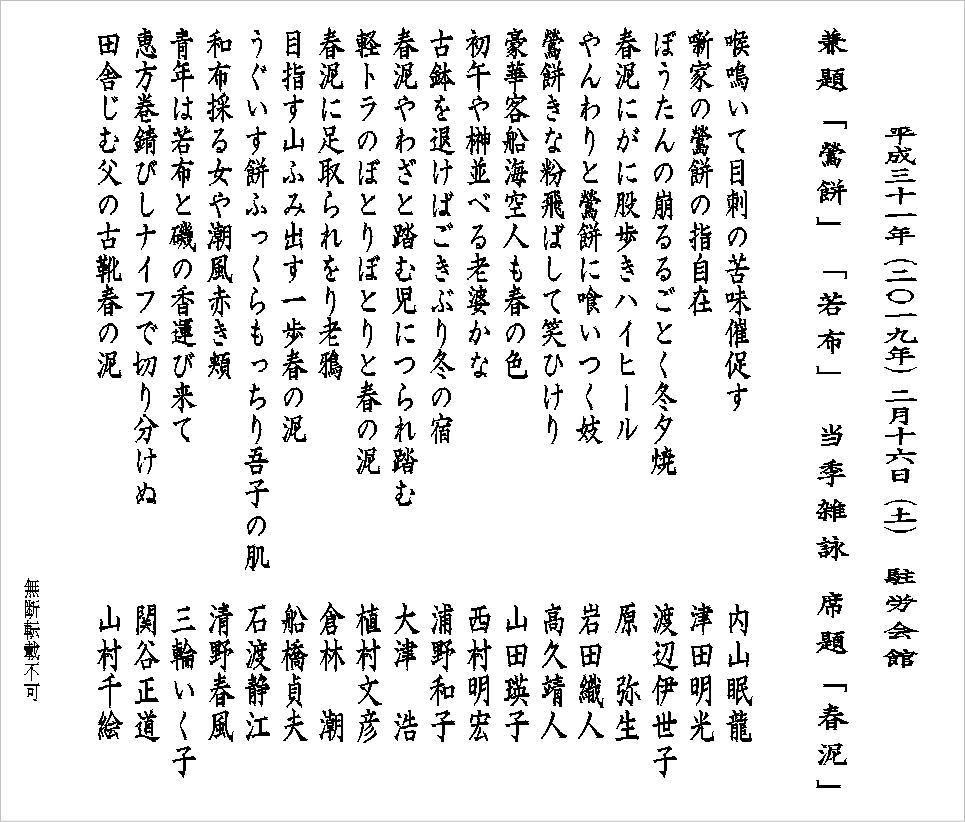 平成三十一年（二〇一九年）二月十六日（土）　駐労会館
兼題「鶯餅」「若布」　当季雑詠　席題「春泥」
喉鳴いて目刺の苦味催促す　内山眠龍
噺家の鶯餅の指自在　津田明光
ぼうたんの崩るるごとく冬夕焼　渡辺伊世子
春泥にがに股歩きハイヒール　原　弥生
やんわりと鶯餅に喰いつく妓　岩田織人
鶯餅きな粉飛ばして笑ひけり　高久靖人
豪華客船海空人も春の色　山田瑛子
初午や榊並べる老婆かな　西村明宏
古鉢を退けばごきぶり冬の宿　浦野和子
春泥やわざと踏む児につられ踏む　大津　浩
軽トラのぼとりぼとりと春の泥　植村文彦
春泥に足取られをり老鴉　倉林　潮
目指す山ふみ出す一歩春の泥　船橋貞夫
うぐいす餅ふっくらもっちり吾子の肌　石渡静江
和布採る女や潮風赤き頬　清野春風
青年は若布と磯の香運び来て　三輪いく子
恵方巻錆びしナイフで切り分けぬ　関谷正道
田舎じむ父の古靴春の泥　山村千絵
無断転載不可